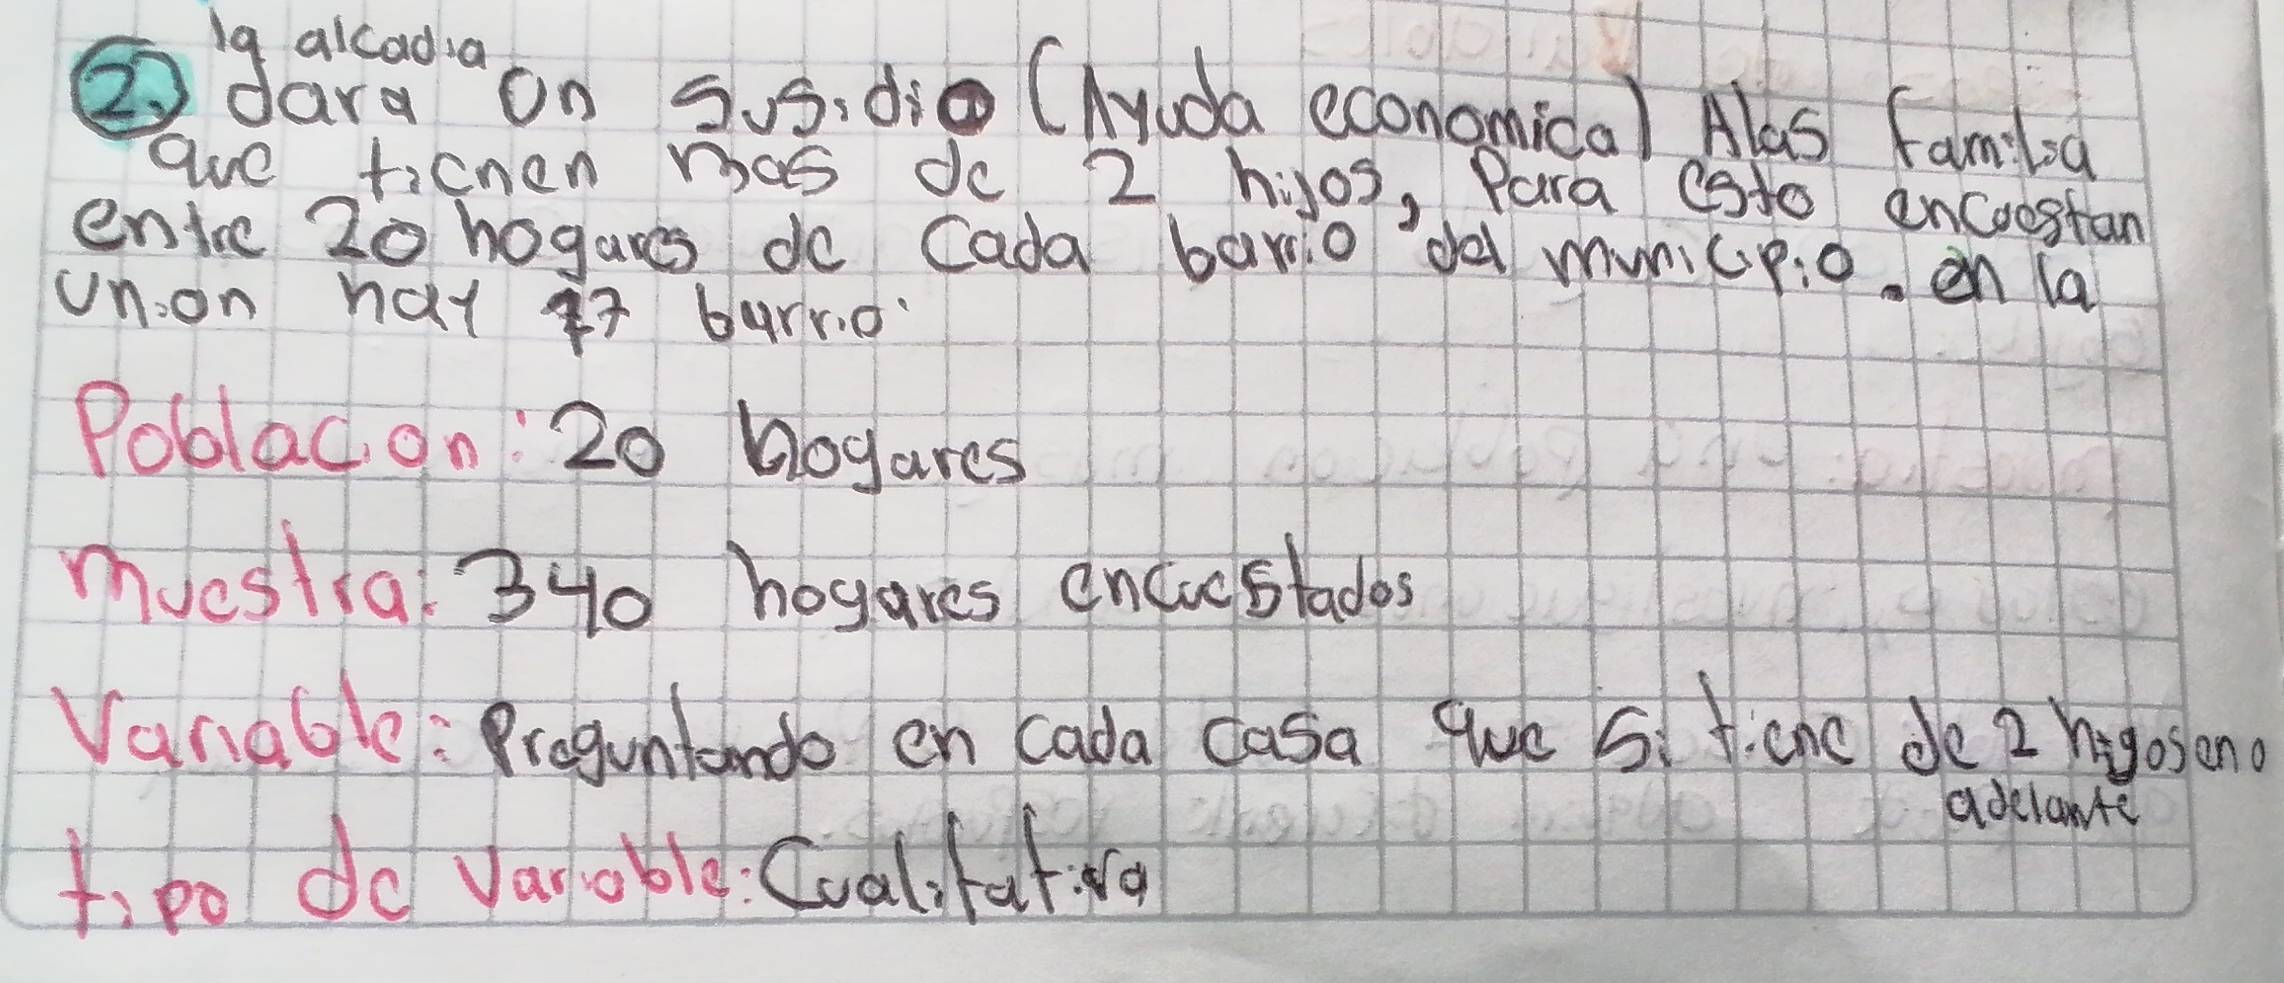 la alcadia
2.) dara un susidio (Ayuda economica) Alas familia
que tienen mas de 2 hijos, Para esto encuestan
entre 20 hogares de cada barrio del municipio. en la
union hay 17 barrio
Poblacion: 20 hogares
muestra: 340 hogares encuestados
Variable: Preguntando en cada casa que si tiene de 2 higos en o
adelante
tipo de variable: Cualitativa